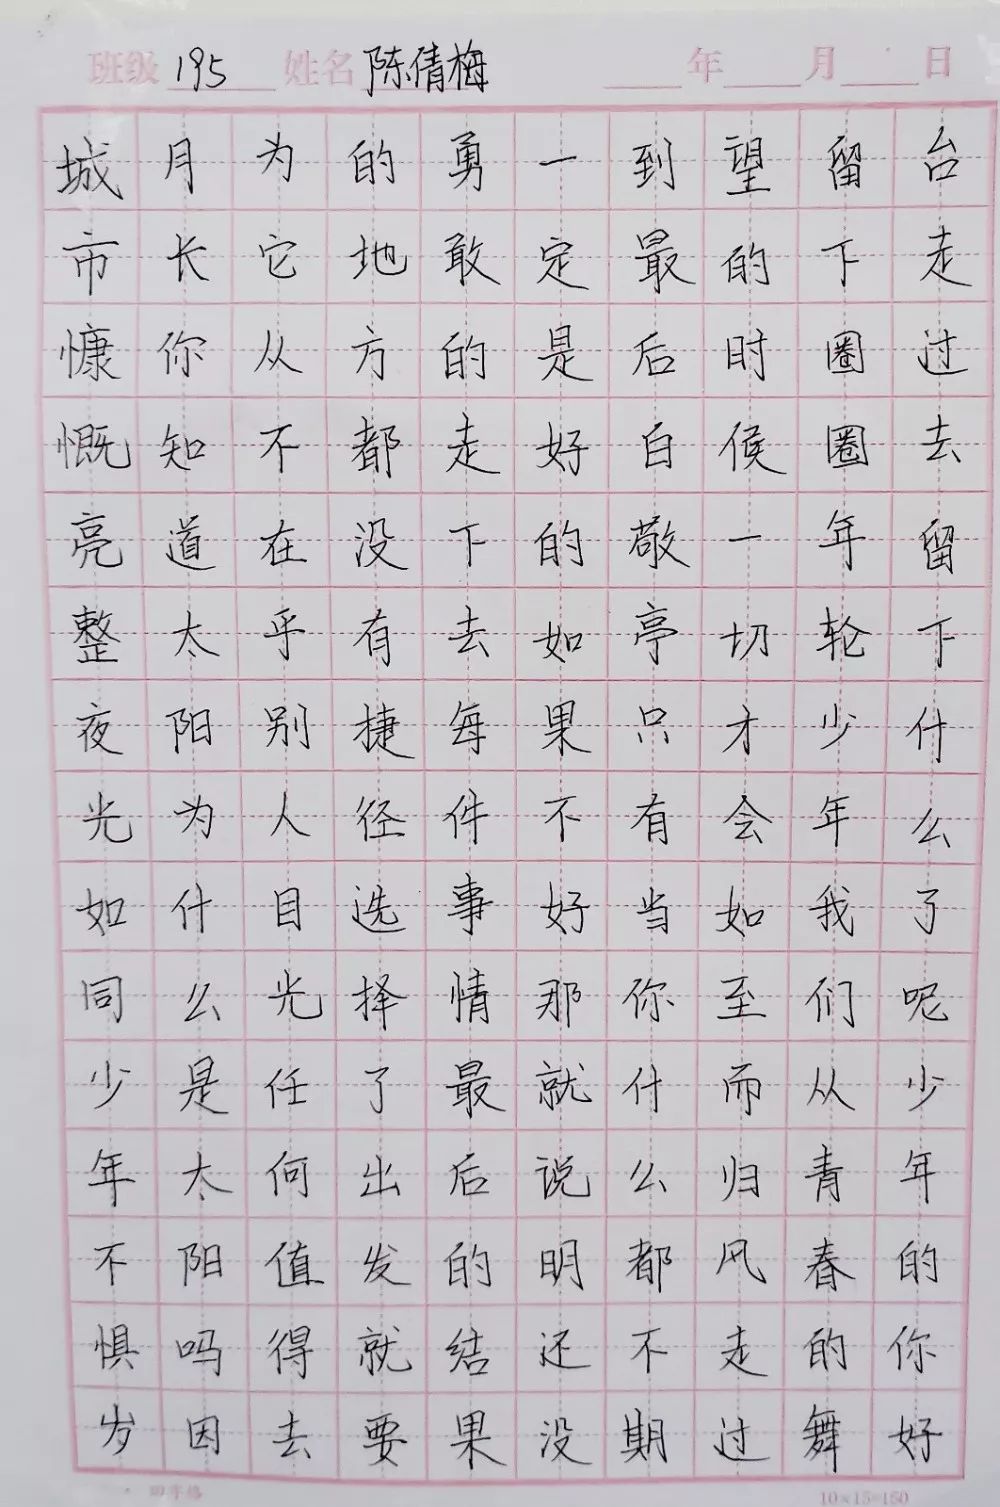 班级 195 姓名 陈倩梅 年 月 日
城市慷慨亮整夜光如同少年不惧岁
月长你知道太阳为什么是太阳吗因
为它从不在乎别人目光任何值得去
的地方都没有捷径选择了出发就要
勇敢的走下去每件事情最后的结果
一定是好的如果不好那就说明还没
到最后白敬亭只有当你什么都不期
望的时候一切才会如至而归风走过
留下圈圈年轮少年我们从青春的舞
台走过去留下什么了呢少年的你好
10×15=150